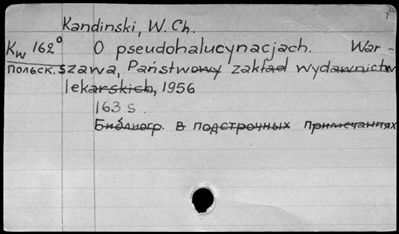 Kandinski, W. Ch.
Kw 162⁰ O pseudohalucynacjach. War-
польск. szawa, Państwowy zakład wydawnictw
lekarskich, 1956
163 s.
Библиогр. в подстрочных примечаниях